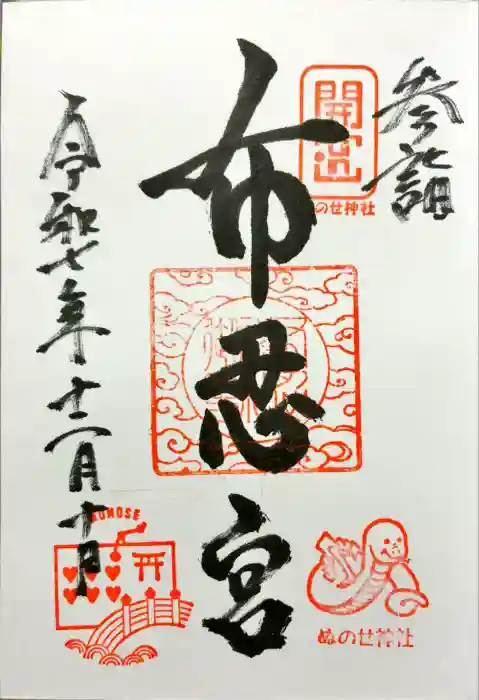 参詣
開運
ぬのせ神社
布忍宮
NUNOSE
ぬのせ神社
令和七年十二月十日